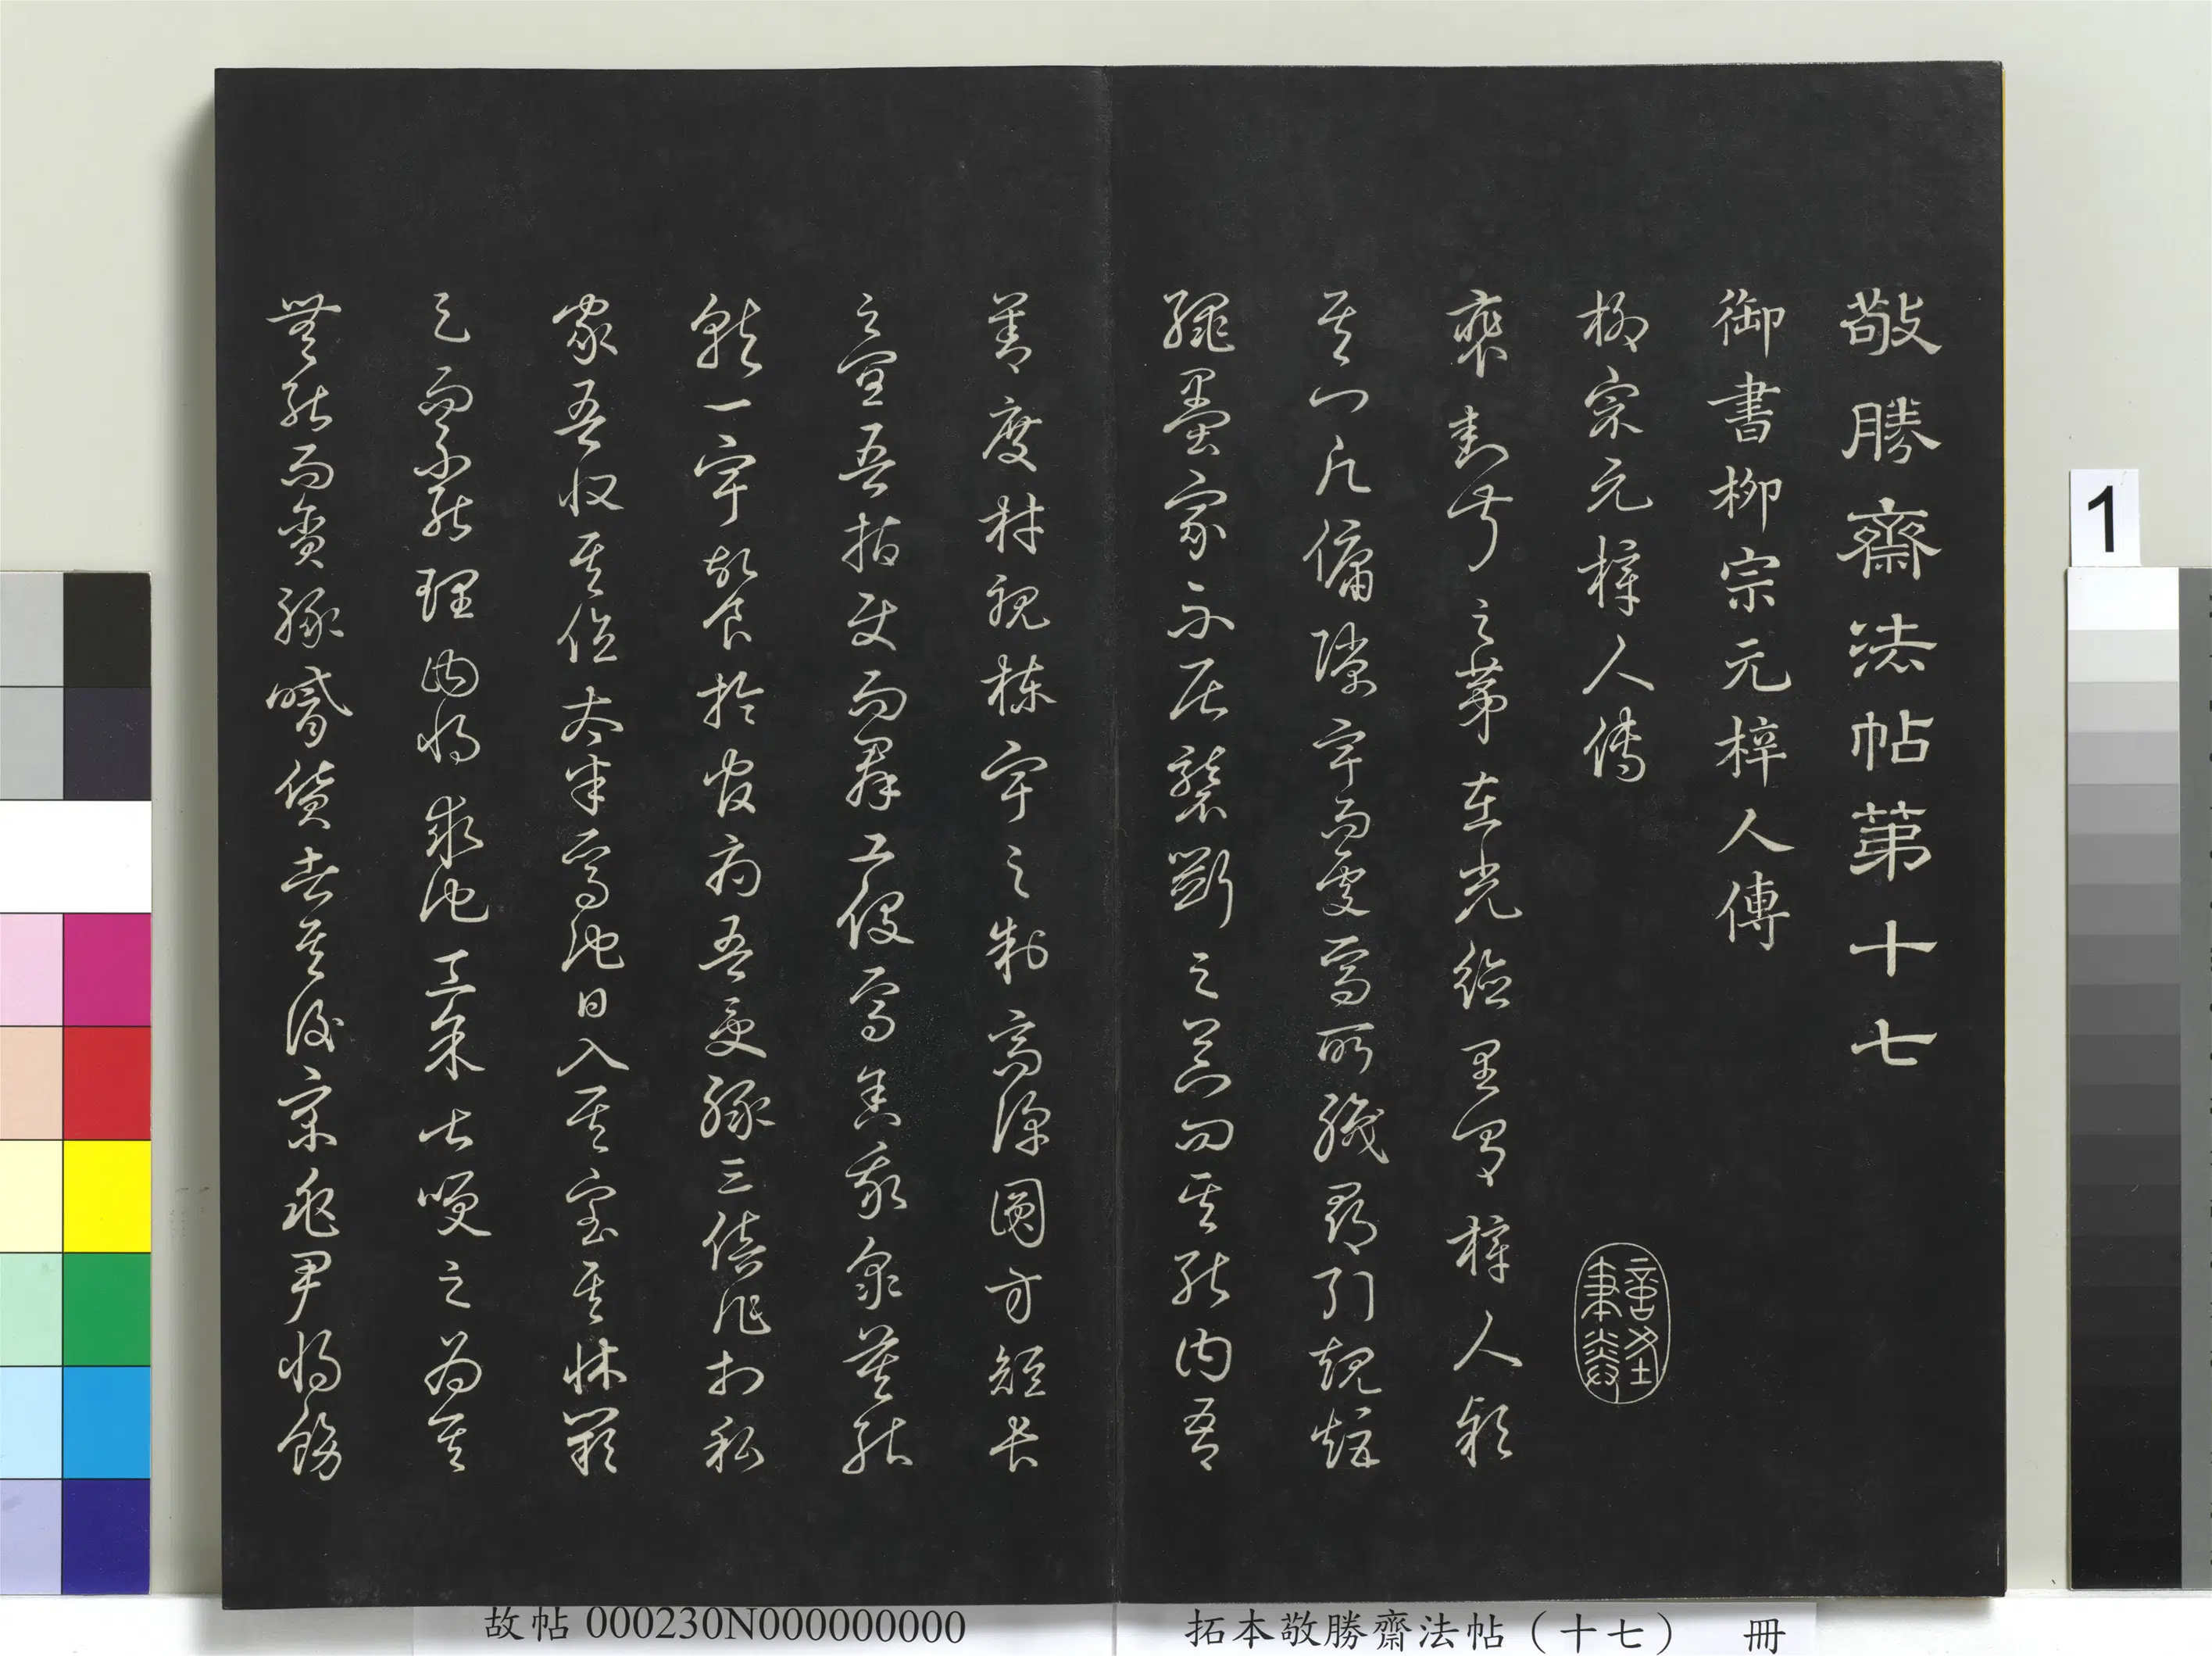 敬勝齋法帖第十七
御書柳宗元梓人傳
柳宗元梓人傳
裴封叔之第在光德里有梓人款
其門願傭隙宇而處焉所職尋引規矩
繩墨家不居礱斲之器問其能曰吾
善度材視棟宇之制高深圓方短長
之宜吾指使而群工役焉舍我衆莫能
就一宇故食於官府吾受祿三倍作於私
家吾收其值太半焉他日入其室其牀闕
足而不能理曰將求他工余甚笑之謂其
無能而貪祿嗜貨者其後京兆尹將飾
1
拓本敬勝齋法帖（十七） 冊
故帖 000230N000000000